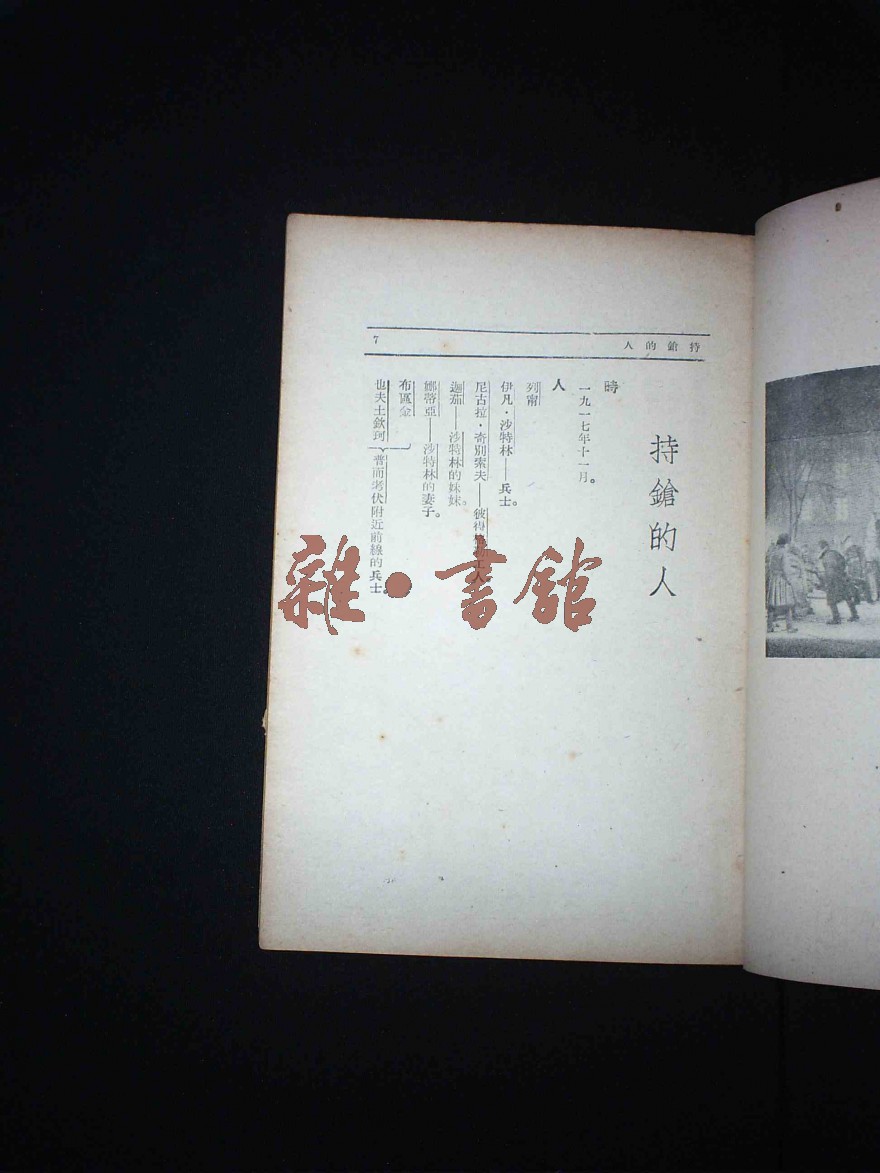 持鎗的人
7
持鎗的人
時
一九一七年十一月。
人
列甯
伊凡·沙特林——兵士。
尼古拉·奇別索夫——彼得 工人
迦茄——沙特林的妹妹。
娜蒂亞——沙特林的妻子。
布區金
也夫土欽珂
普而考伏附近前線的兵士。
雜·書館